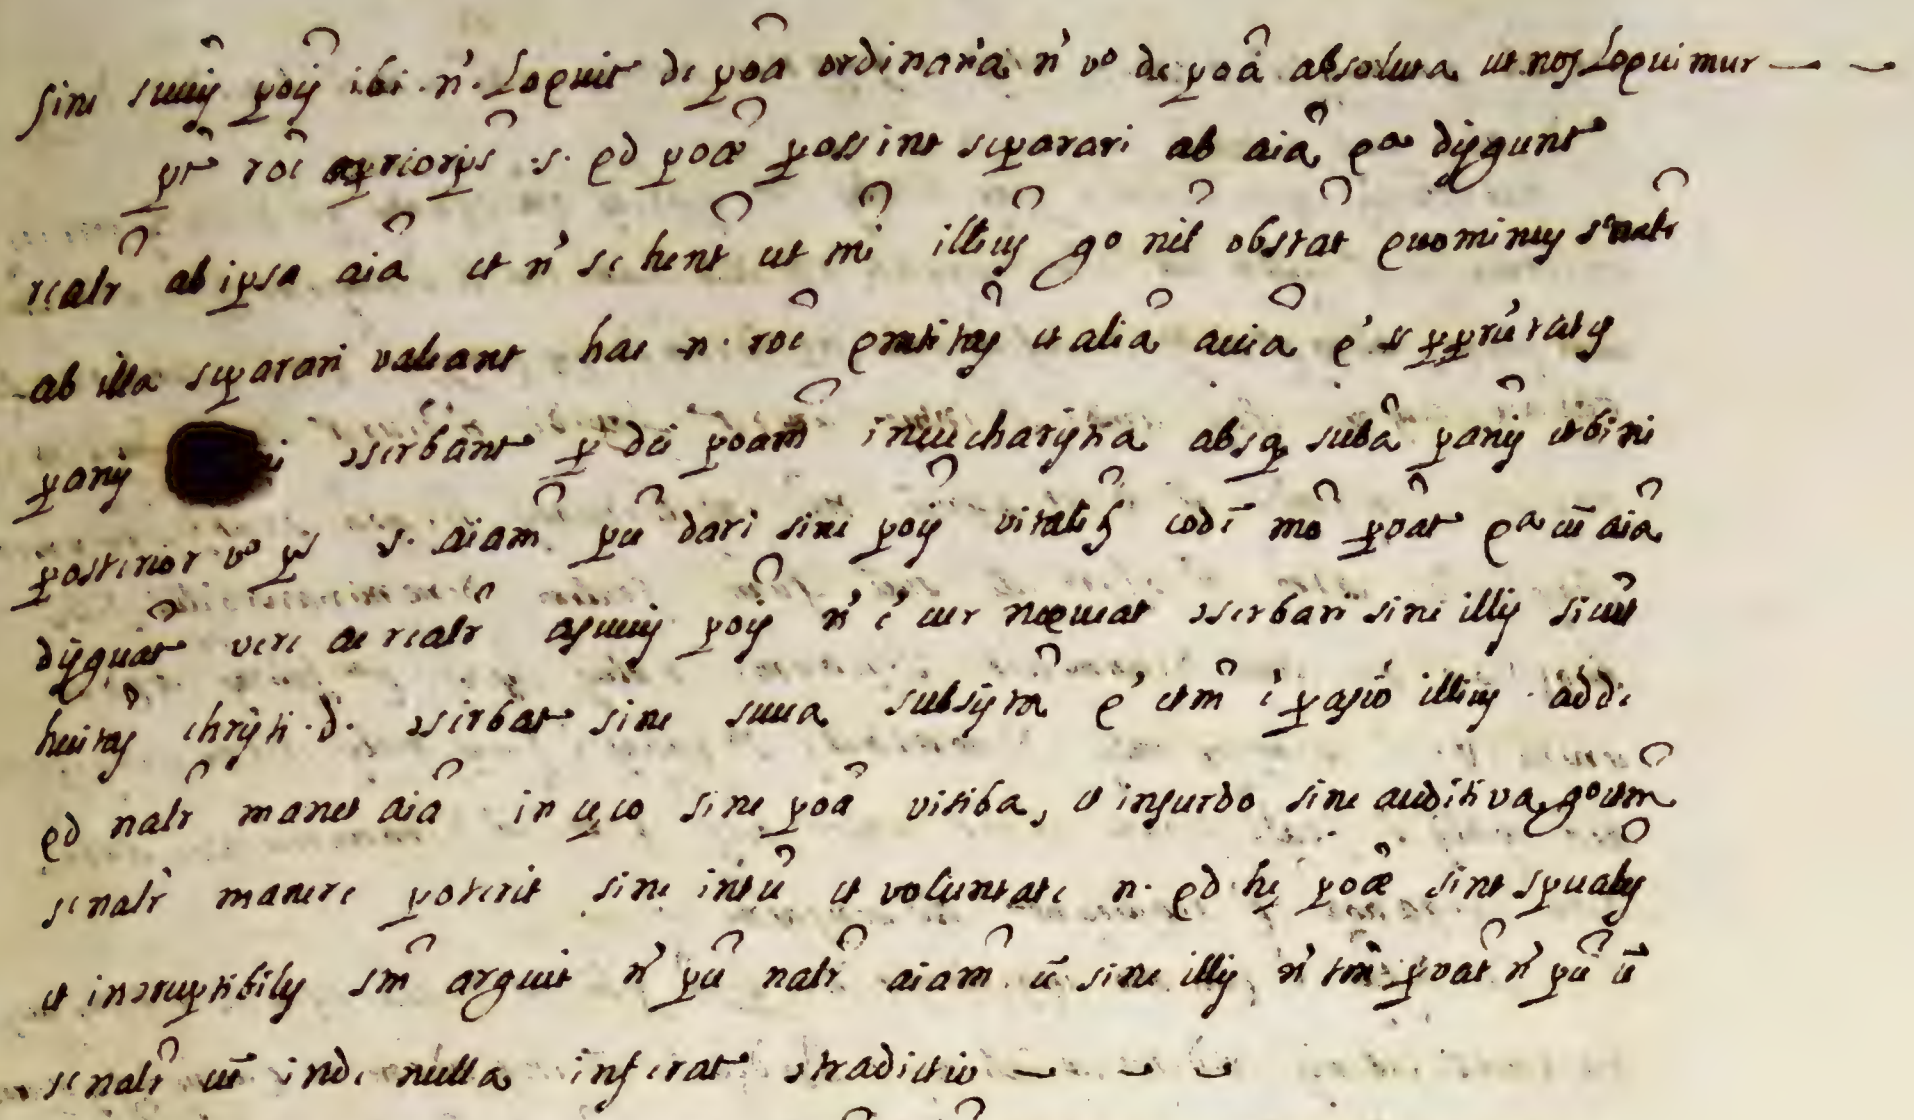 sine suuis põijs ibi .n. Loquit^r de põa ordinaria n̕ v^o de põa absoluta ut nos Loquimur
põt rõe aprioris .s. qd põæ possint separari ab aĩa q^a disgunt^r
realr̃ ab ipsa aĩa et n̕ se hent̃ ut mĩ illius g^o nil obstat quominus s^rnatr̃
ab illa separari valeant hac .n. rõe quatitas et alia accĩa q̕
panis servant^r p dei põam in eucharistia absq subã panis et vini
posterior v^o ps .s. aĩam pũ dari sine põijs vitalib eodẽ mõ pbat^r q^a cũ aĩa
disguat^r vere ac realr̃ asuuis põijs n̕ ẽ cur nequeat ɔservari sine illis sicut
huĩtas christi .d. ɔservat^r sine suua subsistã q̕ etm̃ ẽ passio illius adde
qd natr̃ manet aĩa in cęco sine põa visiva, et insurdo sine auditiva, g^o etm̃
s^rnatr̃ manere poterit sine intũ et voluntate n. qd hę põæ sint spuales
et inɔruptibiles sm̃ arguit n̕ pũ natr̃ aĩam cẽ sine illis n̕ tm̃ pbat n̕ pũ cẽ
s^rnatr̃ cũ inde nulla inferat^r ɔtradictio